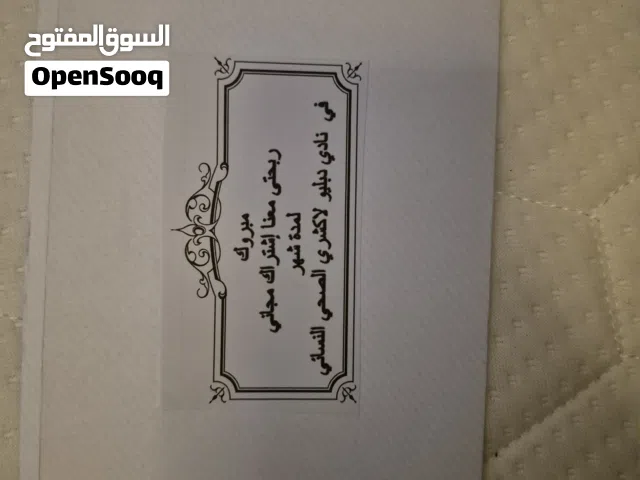 السوق المفتوح
OpenSooq
مبروك
ربحتي معنا إشتراك مجاني
لمدة شهر
في نادي دبليو لاكشري الصحي النسائي